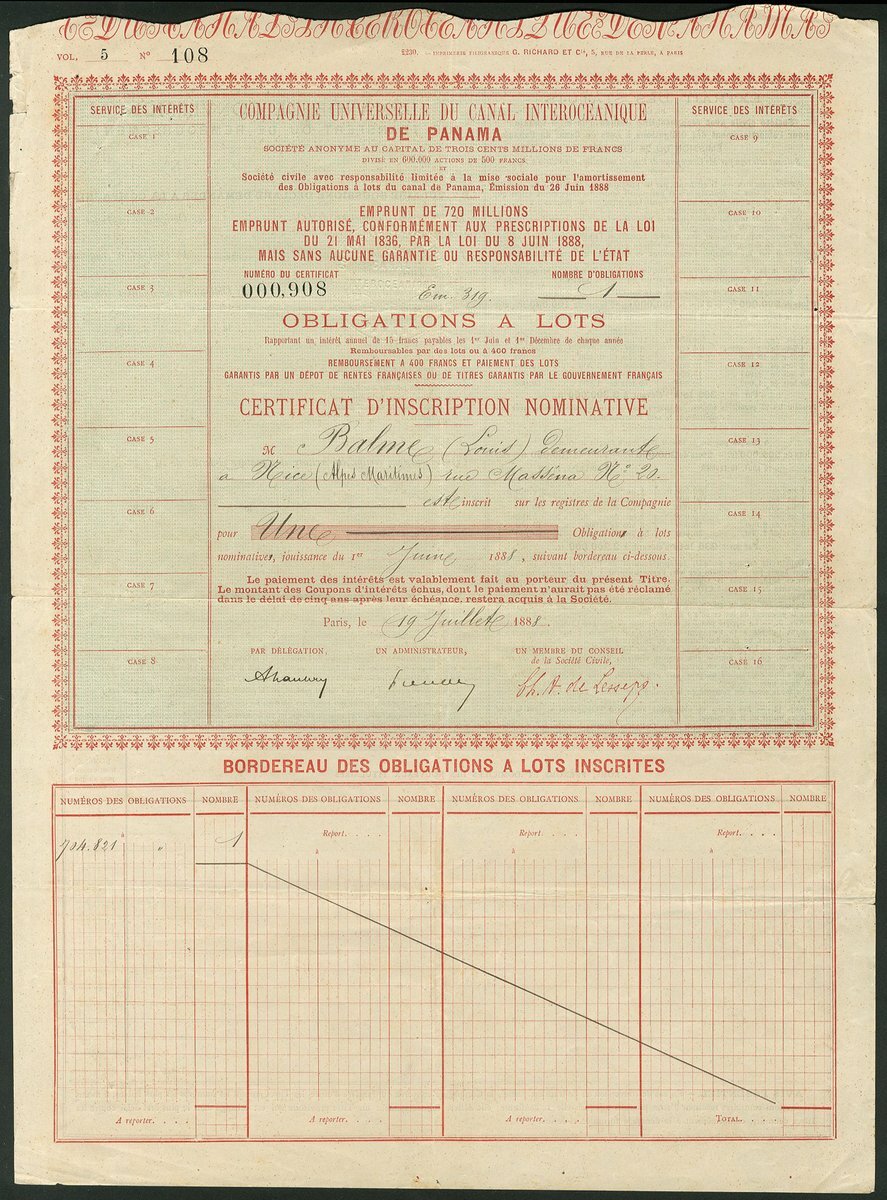 VOL, 5 Nº 108
E230. — IMPRIMERIE FILIGRANIQUE G. RICHARD ET Cie, 5, RUE DE LA PERLE, A PARIS
SERVICE DES INTÉRÊTS
CASE 1
CASE 2
CASE 3
CASE 4
CASE 5
CASE 6
CASE 7
CASE 8
COMPAGNIE UNIVERSELLE DU CANAL INTEROCÉANIQUE
DE PANAMA
SOCIÉTÉ ANONYME AU CAPITAL DE TROIS CENTS MILLIONS DE FRANCS
DIVISÉ EN 600.000 ACTIONS DE 500 FRANCS
ET
Société civile avec responsabilité limitée à la mise sociale pour l'amortissement
des Obligations à lots du canal de Panama, Émission du 26 Juin 1888
EMPRUNT DE 720 MILLIONS
EMPRUNT AUTORISÉ, CONFORMÉMENT AUX PRESCRIPTIONS DE LA LOI
DU 21 MAI 1836, PAR LA LOI DU 8 JUIN 1888,
MAIS SANS AUCUNE GARANTIE OU RESPONSABILITÉ DE L'ÉTAT
NUMÉRO DU CERTIFICAT NOMBRE D'OBLIGATIONS
000,908 Em. 319. 1
OBLIGATIONS A LOTS
Rapportant un intérêt annuel de 15 francs payables les 1er Juin et 1er Décembre de chaque année
Remboursables par des lots ou à 400 francs
REMBOURSEMENT A 400 FRANCS ET PAIEMENT DES LOTS
GARANTIS PAR UN DÉPOT DE RENTES FRANÇAISES OU DE TITRES GARANTIS PAR LE GOUVERNEMENT FRANÇAIS
CERTIFICAT D'INSCRIPTION NOMINATIVE
M Balme (Louis) demeurant
a Nice (Alpes Maritimes) rue Masséna Nº 20.
est inscrit sur les registres de la Compagnie
pour Une Obligations à lots
nominatives, jouissance du 1er Juin 1888, suivant bordereau ci-dessous.
Le paiement des intérêts est valablement fait au porteur du présent Titre.
Le montant des Coupons d'intérêts échus, dont le paiement n'aurait pas été réclamé
dans le délai de cinq ans après leur échéance, restera acquis à la Société.
Paris, le 19 Juillet 1888.
PAR DÉLÉGATION, UN ADMINISTRATEUR, UN MEMBRE DU CONSEIL
de la Société Civile,
Ch. A. de Lesseps.
SERVICE DES INTÉRÊTS
CASE 9
CASE 10
CASE 11
CASE 12
CASE 13
CASE 14
CASE 15
CASE 16
BORDEREAU DES OBLIGATIONS A LOTS INSCRITES
NUMÉROS DES OBLIGATIONS NOMBRE NUMÉROS DES OBLIGATIONS NOMBRE NUMÉROS DES OBLIGATIONS NOMBRE NUMÉROS DES OBLIGATIONS NOMBRE
Report. . . . Report. . . . Report. . . .
à à à à
704.821 " 1
A reporter. . . . A reporter. . . . A reporter. . . . TOTAL. . . .